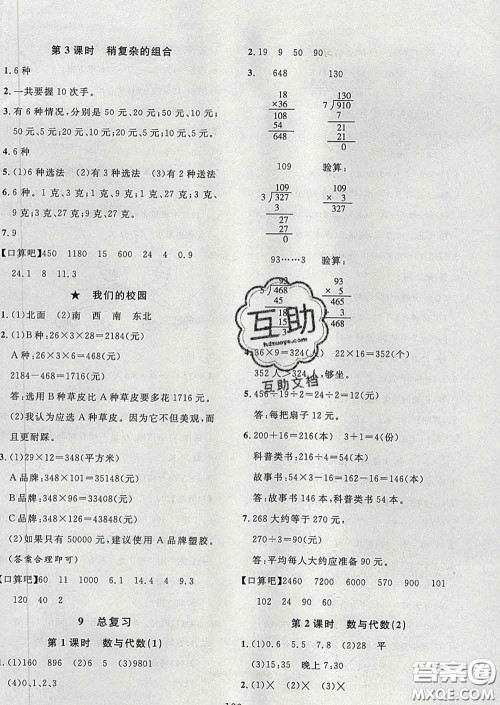 第3课时　稍复杂的组合
1.6种
2.一共要握10次手。
3.有6种情况，分别是50元、20元、50元、10元;50元、5元;20元、10元;20元、5元;10元、5元。
4.6种
5.(1)6种选法　(2)有3种选法　(3)有6种送法
6.6种。1克;3克;9克;1克、3克;1克、9克;3克、9克;1克、3克、9克。
7.9
【口算吧】450　1180　15　600　24　4　0.9
24.1　8　11.3
★　我们的校园
1.(1)北面　(2)南　西　南　东北
2.(1)B种:26×3×28=2184(元)
A种:26×3×6=468(元)
2184-468=1716(元)
答:选用B种草皮比A种草皮要多花1716元。
(2)我认为应选A种草皮。因为它不但美观,而且更耐踩。
3.(1)29×12=348(平方米)
A品牌:348×101=35148(元)
B品牌:348×124=43152(元)
C品牌:348×216=
(2)如果只有50000元,建议使用A品牌塑胶。
(答案合理即可)
【口算吧】60　11　1000　6.1　14　2.4　9.3
120　40　2
9　总复习
第1课时　数与代数(1)
1.(1)160　896　(2)5　(3)9801
(4)0、1、2、3
2.19　9　50　90
3.　648　130
18
×36
108
54
648
130
7 910
7
21
21
0
109　验算:
109
3 327
3
27
27
0
109
× 3
327
93……3　验算:
93
5 468
45
18
15
3
93
× 5
465
+ 3
468
互助
互助文档
4.36×9=324(人)　22×16=352(人)
352人>324人,够坐。
5.456÷19÷2=24÷2=12(元)
答:每把扇子12元。
6.200+16=216(本)　3+1=4(份)
科普类书:216÷4=54(本)
故事书:54×3=162(本)
答:故事书162本,科普类书54本。
7.268大约等于270元,
270÷3=90(元)
答:平均每人大约应准备90元。
【口算吧】2460　7200　6000　1500　432
102　24　90　30　240　50
第2课时　数与代数(2)
1.(1)0.6　5.5　7.8　(2)28　平
(3)15:35　晚上7:30
2.(1)×　(2)×　(3)×
答案圈
MXQE.COM